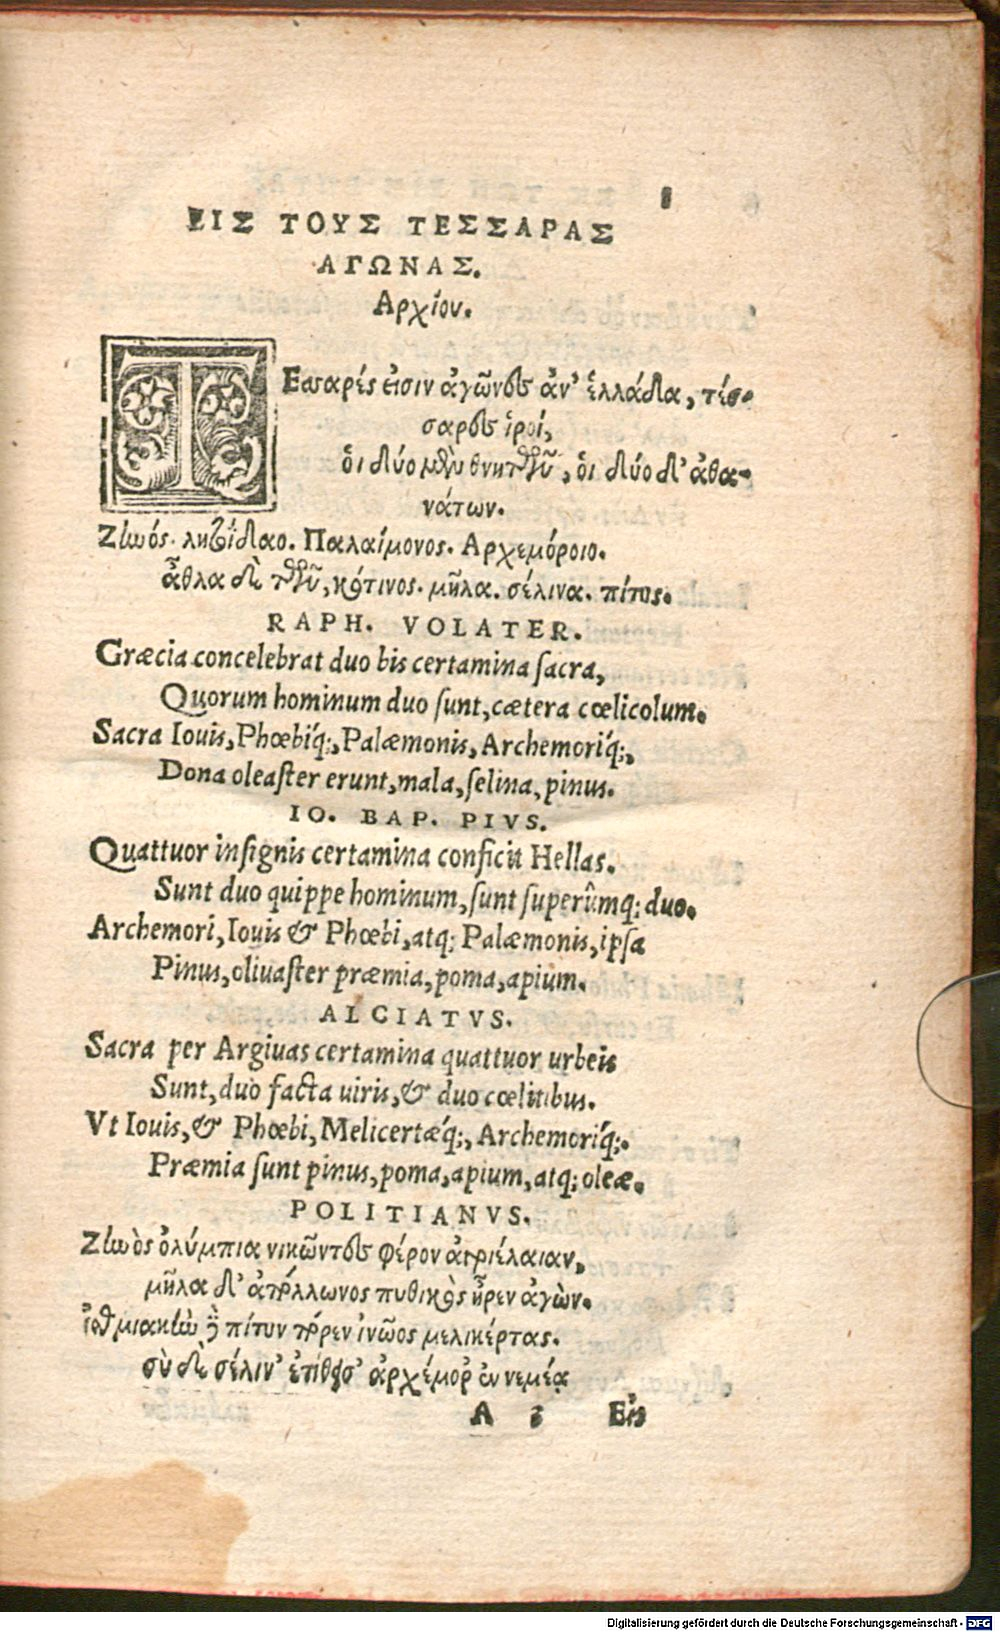 1
ΕΙΣ ΤΟΥΣ ΤΕΣΣΑΡΑΣ
ΑΓΩΝΑΣ.
Αρχίου.
ΤΕσσαρές εἰσιν ἀγῶνες ἀν' ἑλλάδα, τέσ-
σαρες ἱροί,
ὁι δύο μὲν θνητῶν, ὁι δύο δ' ἀθα-
νάτων.
Ζηνός. λητοΐδαο. Παλαίμονος. Αρχεμόροιο.
ἆθλα δὲ τῶν, κότινος. μῆλα. σέλινα. πίτυς.
RAPH. VOLATER.
Græcia concelebrat duo bis certamina ſacra,
Quorum hominum duo ſunt, cætera cœlicolum.
Sacra Iouis, Phœbiq́;, Palæmonis, Archemoriq́;,
Dona oleaſter erunt, mala, ſelina, pinus.
IO. BAP. PIVS.
Quattuor inſignis certamina conficit Hellas.
Sunt duo quippe hominum, ſunt ſuperûmq; duo.
Archemori, Iouis & Phœbi, atq; Palæmonis, ipſa
Pinus, oliuaſter præmia, poma, apium.
ALCIATVS.
Sacra per Argiuas certamina quattuor urbeis
Sunt, duo facta uiris, & duo cœlitibus.
Vt Iouis, & Phœbi, Melicertæq́;, Archemoriq́;.
Præmia ſunt pinus, poma, apium, atq; oleæ.
POLITIANVS.
Ζηνὸς ὀλύμπια νικῶντες φέρον ἀγριέλαιαν,
μῆλα δ' ἀπόλλωνος πυθικὸς ἦρεν ἀγὼν.
ἰσθμιακὴν δὲ πίτυν πόρεν ἰνῶος μελικέρτας.
σὺ δὲ σέλιν' ἐτίθεσ' ἀρχέμορ' ἐν νεμέᾳ
A Εἰς
Digitalisierung gefördert durch die Deutsche Forschungsgemeinschaft - DFG